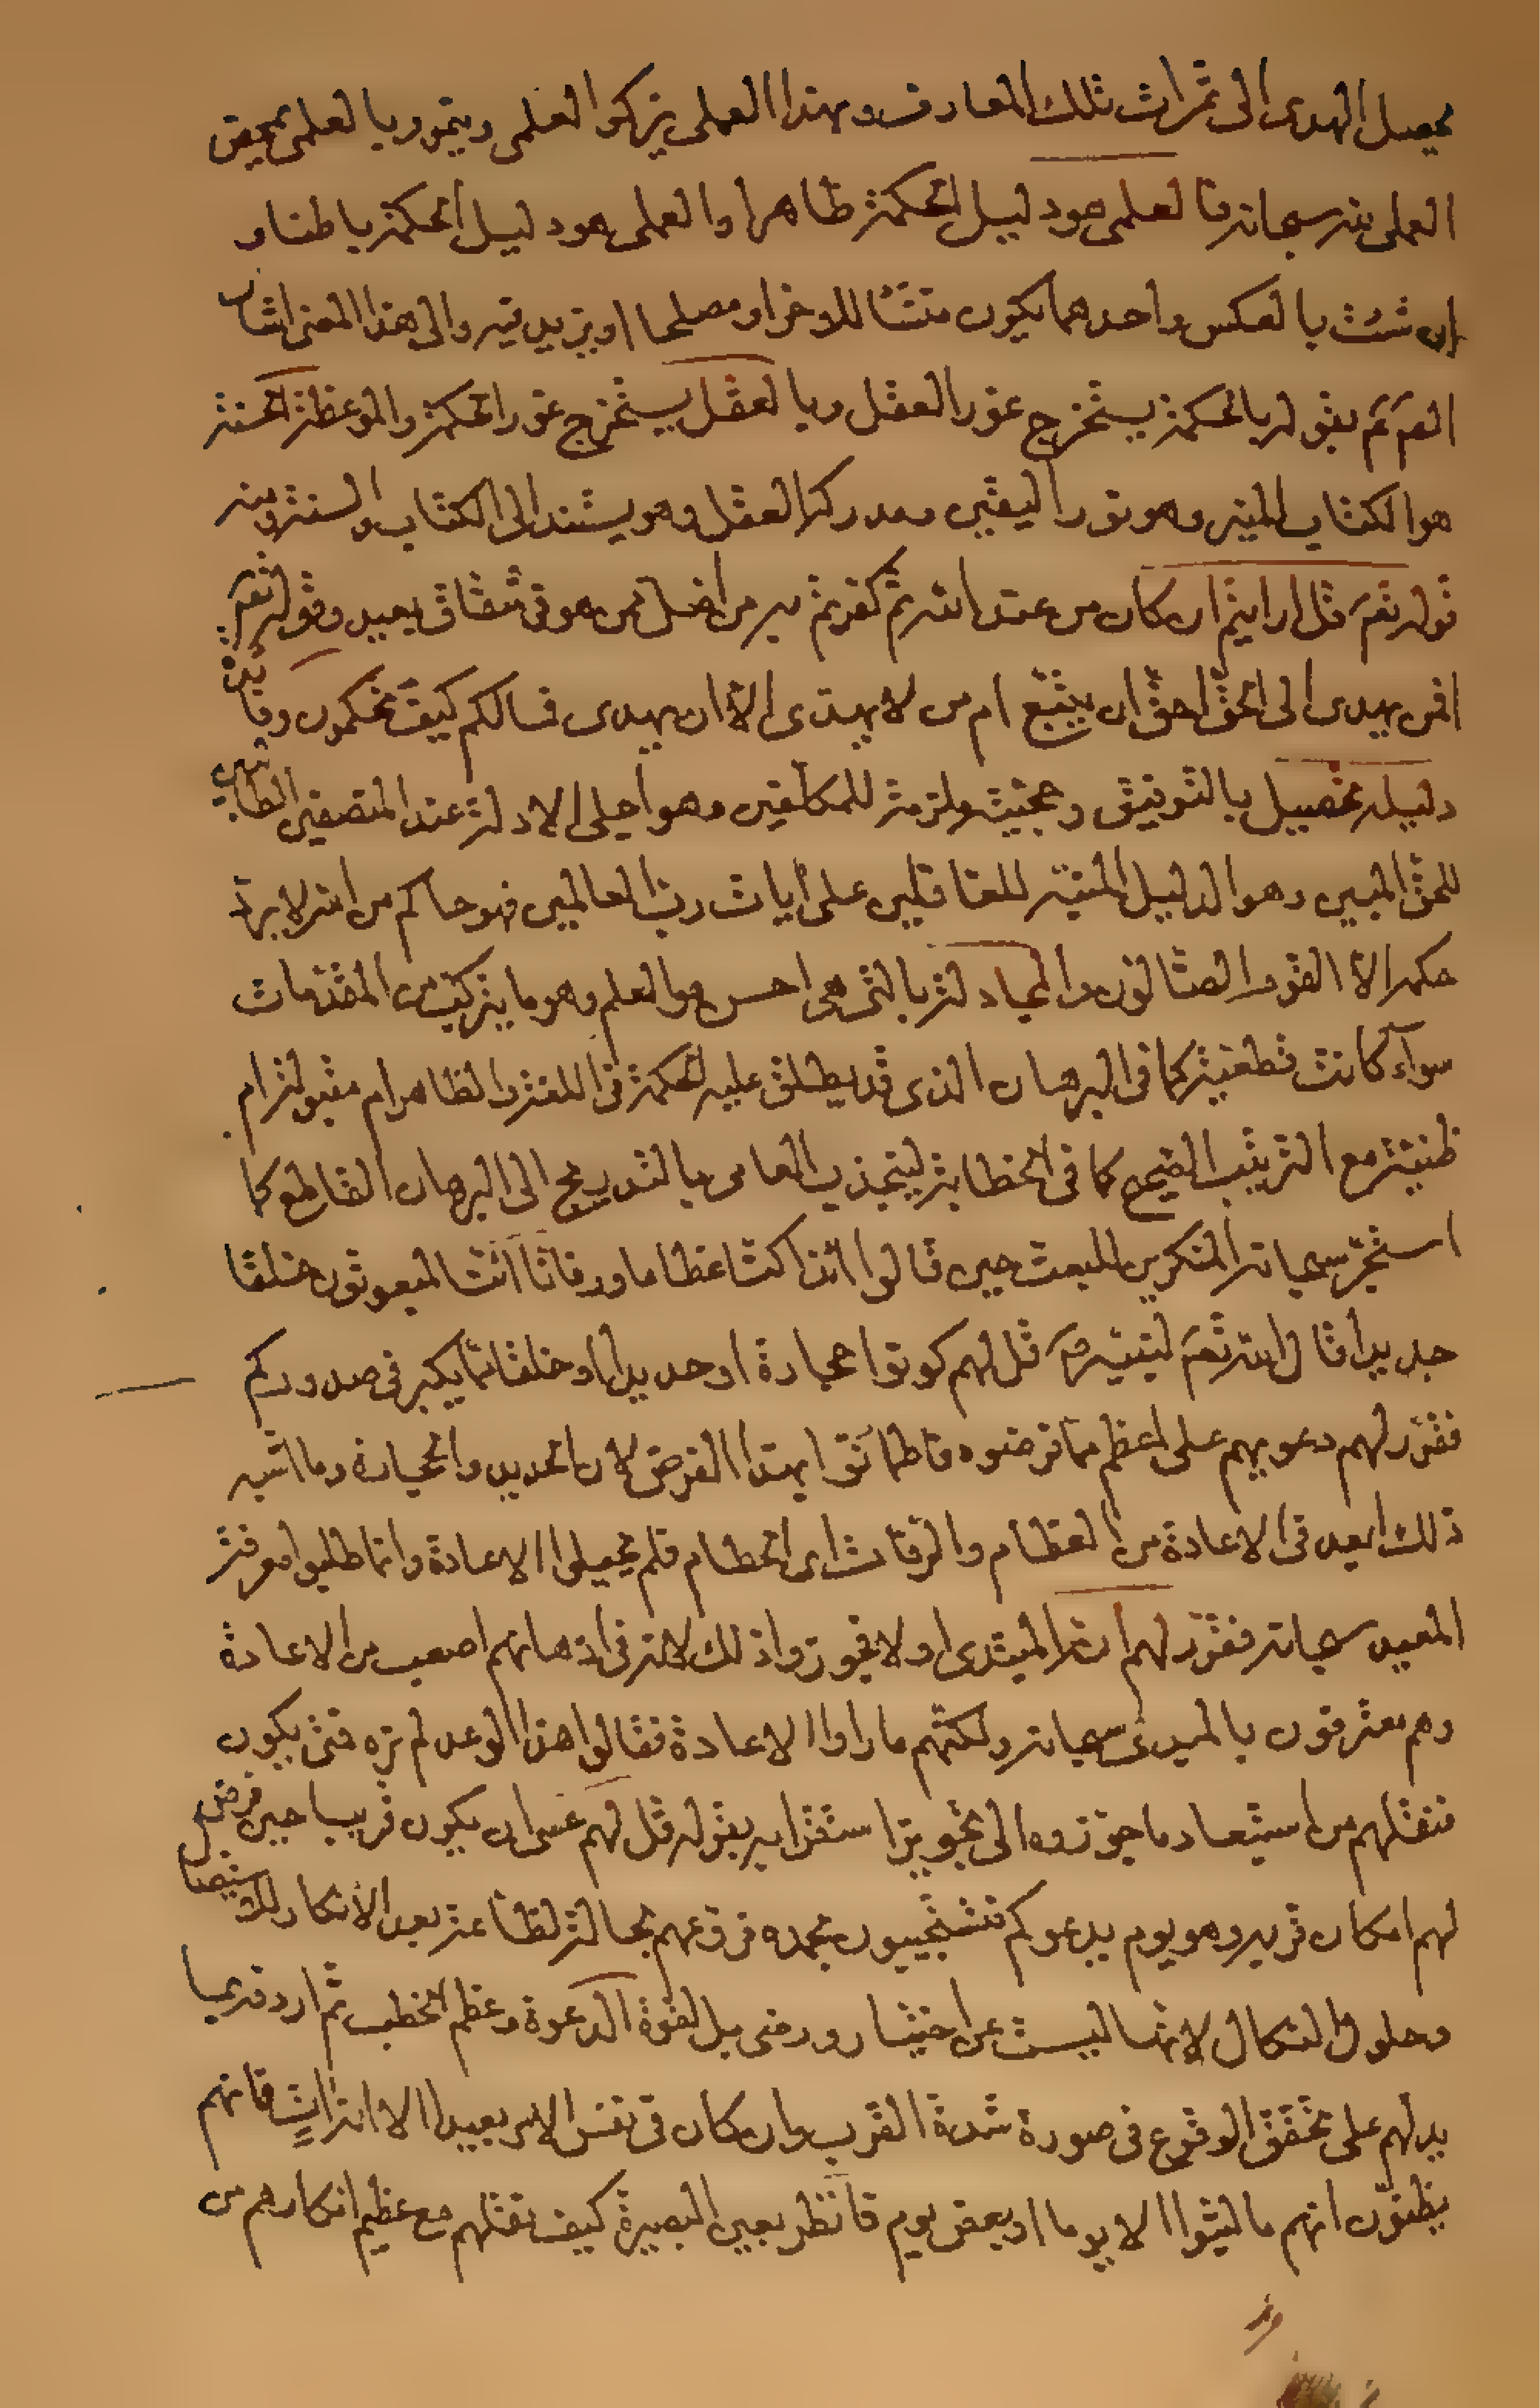 يحصل الهدى الى ثمرات تلك المعارف وبهذا العملى يزكوا العلمى وينمو وبالعلمى يمحض
العملى لله سبحانه فالعلمى هو دليل الحكمة ظاهرا والعملى هو دليل الحكمة باطنا و
ان شئت بالعكس واحدهما يكون منشئا للاخر او مصلحا او يزيد فيه والى هذا المعنى اشار
العم ٤ م بقوله بالحكمة يستخرج غور العقل وبالعقل يستخرج غور الحكمة والموعظة الحسنة
هو الكتاب المنير وهو نور اليقين ومدركه العقل وهو يستند الى الكتاب والسنة ومنه
قوله تعم قل ارايتم ان كان من عند الله ثم كفرتم به من اضل ممن هو فى شقاق بعيد وقوله تعم
افمن يهدى الى الحق احق ان يتبع ام من لا يهدى الا ان يهدى فمالكم كيف تحكمون وفايدة
دليله تحصيل بالتوفيق وحجيته ملزمة للمكلفين وهو اجلى الادلة عند المنصفين الطالبين
للحق المبين وهو الدليل المنبه للغافلين على ايات رب العالمين فهو حاكم من الله لا يرد
حكمه الا القوم الضالون والمجادلة بالتى هى احسن هو العلم وهو ما يتركب من المقدمات
سوآء كانت قطعية كما فى البرهان الذى قد يطلق عليه الحكمة فى اللغة والظاهر ام مقبولة ام
ظنية مع الترتيب الصحيح كما فى الخطابة لينجذب العامى بالتدريج الى البرهان القاطع كما
استجر سبحانه المنكرين للبعث حين قالوا ائذا كنا عظاما ورفاتا ائنا لمبعوثون خلقا
جديدا قال الله تعم لنبيه ص قل لهم كونوا حجارة او حديدا او خلقا مما يكبر فى صدوركم
فقرر لهم دعويهم على اعظم مما فرضوه فاطمانوا بهذا الفرض لان الحديد والحجارة وما اشبه
ذلك ابعد فى الاعادة من العظام والرفات اى الحطام فلم يحيلوا الاعادة وانما طلبوا معرفة
المعيد سبحانه فقرر لهم انه المبتدى اولا فجوزوا ذلك لانه فى اذهانهم اصعب من الاعادة
وهم معترفون بالمبدئ سبحانه ولكنهم ما راوا الاعادة فقالوا هذا الوعد لم نره فمتى يكون
فنقلهم من استبعاد ما جوزوه الى تجويز استقرابه بقوله قل لهم عسى ان يكون قريبا حين فرض
لهم امكان قربه وهو يوم يدعوكم فتستجيبون بحمده فروعهم بحالة الطاعة بعد الانكار
وحلول النكال لانها ليست عن اختيار ورضى بل لقوة الدعوة وعظم الخطب ثم اردف بما
يدلهم على تحقق الوقوع فى صورة شدة القرب وان كان فى نفس الامر بعيدا الا انه ات فانهم
يظنون انهم ما لبثوا الا يوما او بعض يوم فانظر بعين البصيرة كيف نقلهم مع عظيم انكارهم من